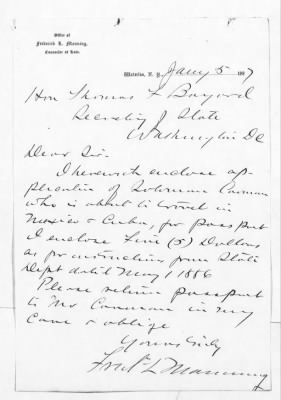 Office of
Frederick L. Manning,
Counselor at Law.
Waterloo, N. Y. Jany 5 1887
Hon Thomas F Bayard
Secretary of State
Washington DC
Dear Sir.
I herewith enclose ap-
plication of Solomon
who is about to travel in
Mexico & Cuba, for passport
I enclose Five (5) Dollars
as per instruction from State
Dept dated May 1 1886
Please return passport
to Mr in my
care & oblige
Yours truly
Fredk L Manning